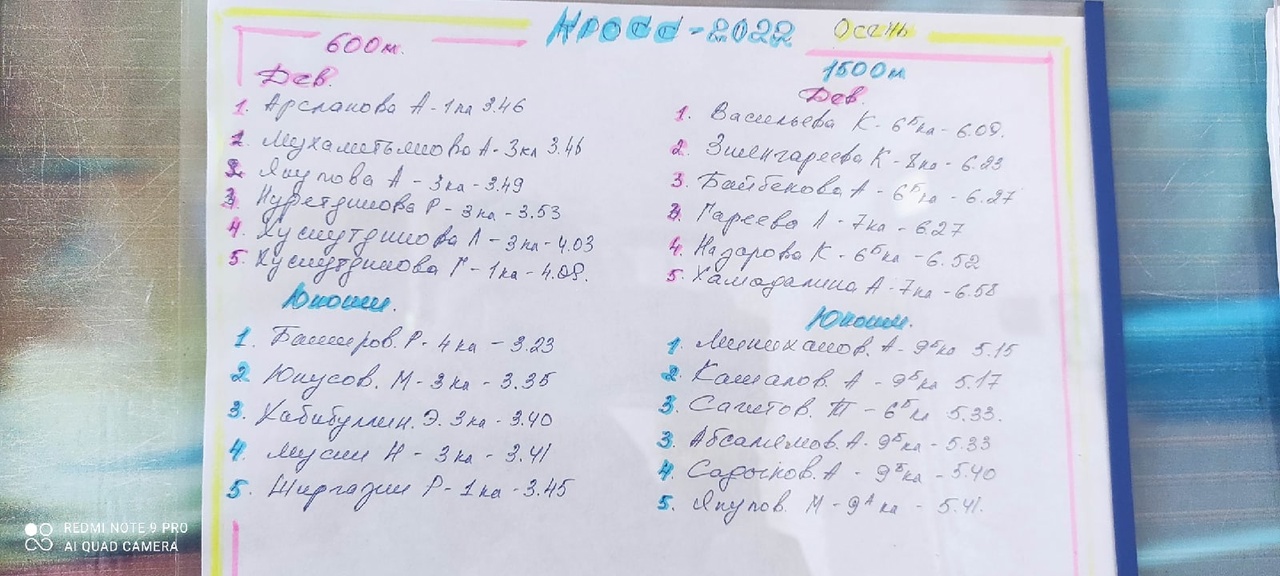 Кросс-2022 Осень
600м.
Дев.
1. Арсланова А - 1кл 3.46
2. Мухаметьянова А - 3кл 3.46
2. Якупова А - 3кл - 3.49
3. Нуретдинова Р - 3кл - 3.53
4. Хуснутдинова Л - 3кл - 4.03
5. Хуснутдинова Г - 1кл - 4.08.
Юноши.
1. Баширов. Р - 4кл - 3.23
2. Юнусов. М - 3кл - 3.35
3. Хабибуллин. Э. 3кл - 3.40
4. Мусин Н - 3кл - 3.41
5. Ширгазин Р - 1кл - 3.45
1500м
Дев.
1. Васильева К - 6Бкл - 6.09.
2. К - 8кл - 6.23
3. Байбекова А - 6Бкл - 6.27
3. Гареева Л - 7кл - 6.27
4. Назарова К - 6Бкл - 6.52
5. Хамадалина А - 7кл - 6.58
Юноши.
1. Миниханов. А - 9Бкл 5.15
2. Кашапов. А - 9Бкл 5.17
3. Сагитов. Т - 6Бкл 5.33.
3. Абсалямов. А - 9Бкл - 5.33
4. Садыков. А - 9Бкл - 5.40
5. Якупов. М - 9Акл - 5.41.
REDMI NOTE 9 PRO
AI QUAD CAMERA